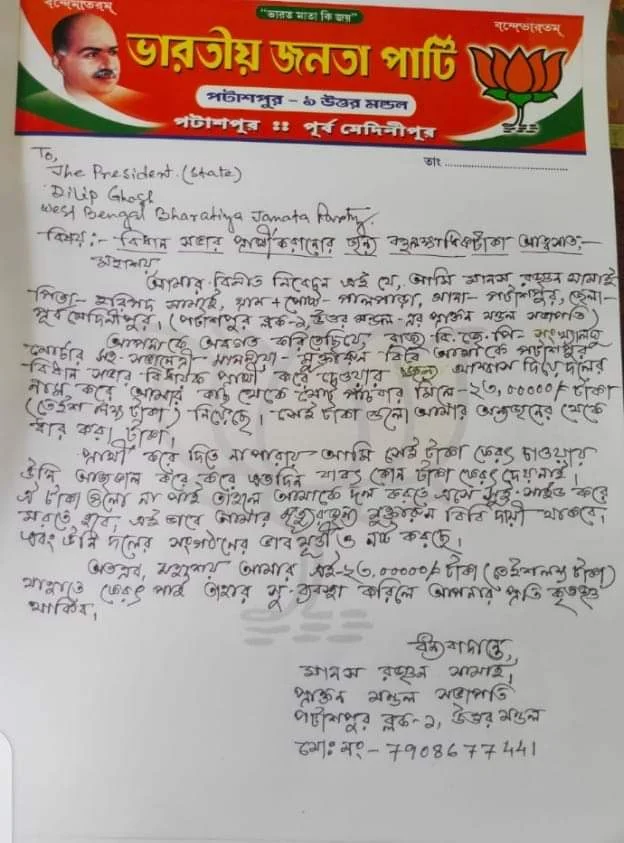 বন্দেমাতরম্
"ভারত মাতা কি জয়"
বন্দেমাতরম্
ভারতীয় জনতা পার্টি
পটাশপুর - ১ উত্তর মন্ডল
পটাশপুর :: পূর্ব মেদিনীপুর
To,
তাং
The President. (State)
Dilip Ghosh
West Bengal Bharatiya Janata Party.
বিষয়:- বিধান সভার প্রার্থী করানোর জন্য টাকা আত্মসাত:-
মহাশয়
আমার বিনীত নিবেদন এই যে, আমি মানস রঞ্জন সামাই
পিতা- হরিপদ সামাই, গ্রাম + পোষ্ট- পালপাড়া, থানা- পটাশপুর, জেলা-
পূর্ব মেদিনীপুর। (পটাশপুর ব্লক-১, উত্তর মন্ডল-এর প্রাক্তন মন্ডল সভাপতি)
আপনাকে অবগত করিতেছি যে রাজ্য বি.জে.পি- সংখ্যালঘু
মোর্চার সহ-সভানেত্রী- মাননীয়া- বিবি আমাকে পটাশপুর
বিধান সভার বিধায়ক প্রার্থী করে দেওয়ার জন্য আশ্বাস দিয়ে দলের
নাম করে আমার কাছ থেকে মোট পাঁচবার মিলে- ২৩,০০০০০/- টাকা
(তেইশ লক্ষ টাকা) নিয়েছে। সেই টাকা গুলো আমার থেকে
ধার করা টাকা।
প্রার্থী করে দিতে না পারায় আমি সেই টাকা ফেরৎ চাওয়ায়
উনি আজকাল করে করে এতদিন যাবৎ কোন টাকা ফেরৎ দেয় নাই।
ঐ টাকা গুলো না পাই তাহলে আমাকে দল করতে এসে সুইসাইড করে
মরতে হবে, এই ভাবে আমার মৃত্যুর জন্য বিবি দায়ী থাকবে,
এবং উনি দলের সংগঠনের ভাব মূর্তী ও নষ্ট করছে।
অতএব, মহাশয় আমার এই- ২৩,০০০০০/- টাকা (তেইশ লক্ষ টাকা)
যাহাতে ফেরৎ পাই তাহার সু-ব্যবস্থা করিলে আপনার প্রতি কৃতজ্ঞ
থাকিব।
ধন্যবাদান্তে,
মানস রঞ্জন সামাই,
প্রাক্তন মন্ডল সভাপতি
পটাশপুর ব্লক-১, উত্তর মন্ডল
মোঃ নং - 7908677441